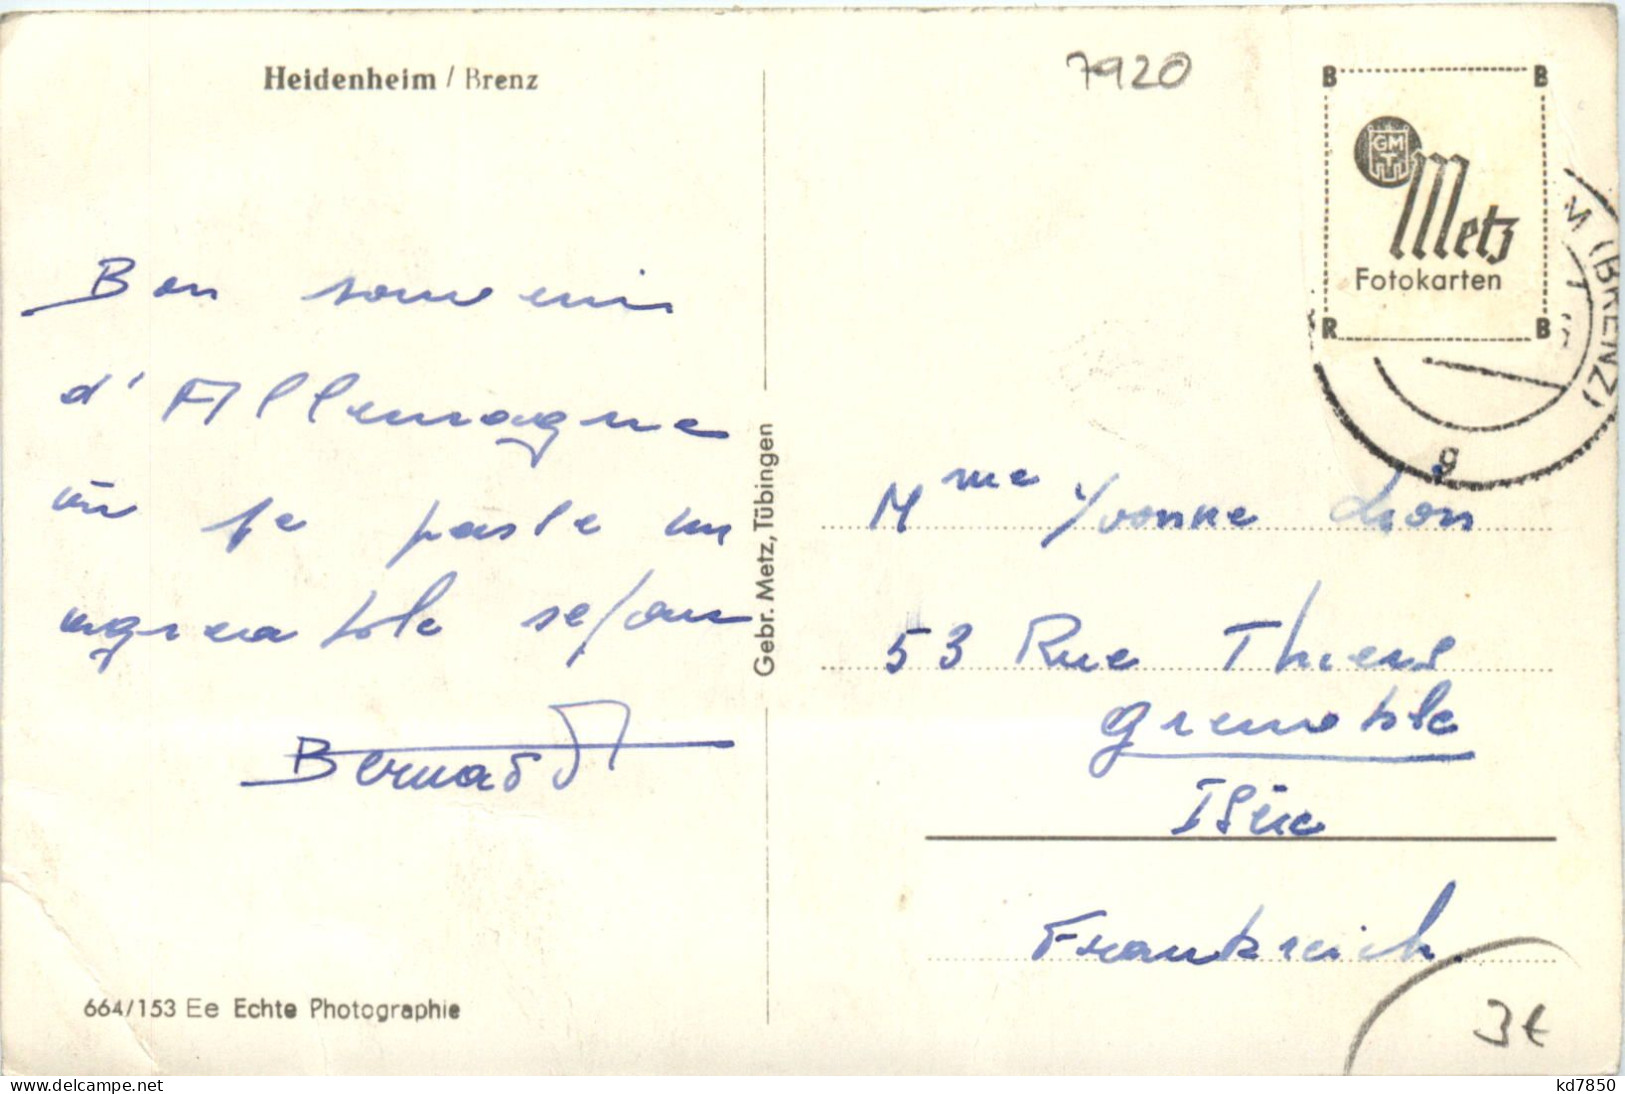 Heidenheim / Brenz
7920
B B
GMT
Metz
Fotokarten
R B
M (BRENZ)
g
Bon souvenir
d'Allemagne
où je passe un
agreable sejour
Bernard
Gebr. Metz, Tübingen
Mme Yvonne Lion
53 Rue Thiers
Grenoble
Isère
Frankreich.
664/153 Ee Echte Photographie
3€
www.delcampe.net
kd7850